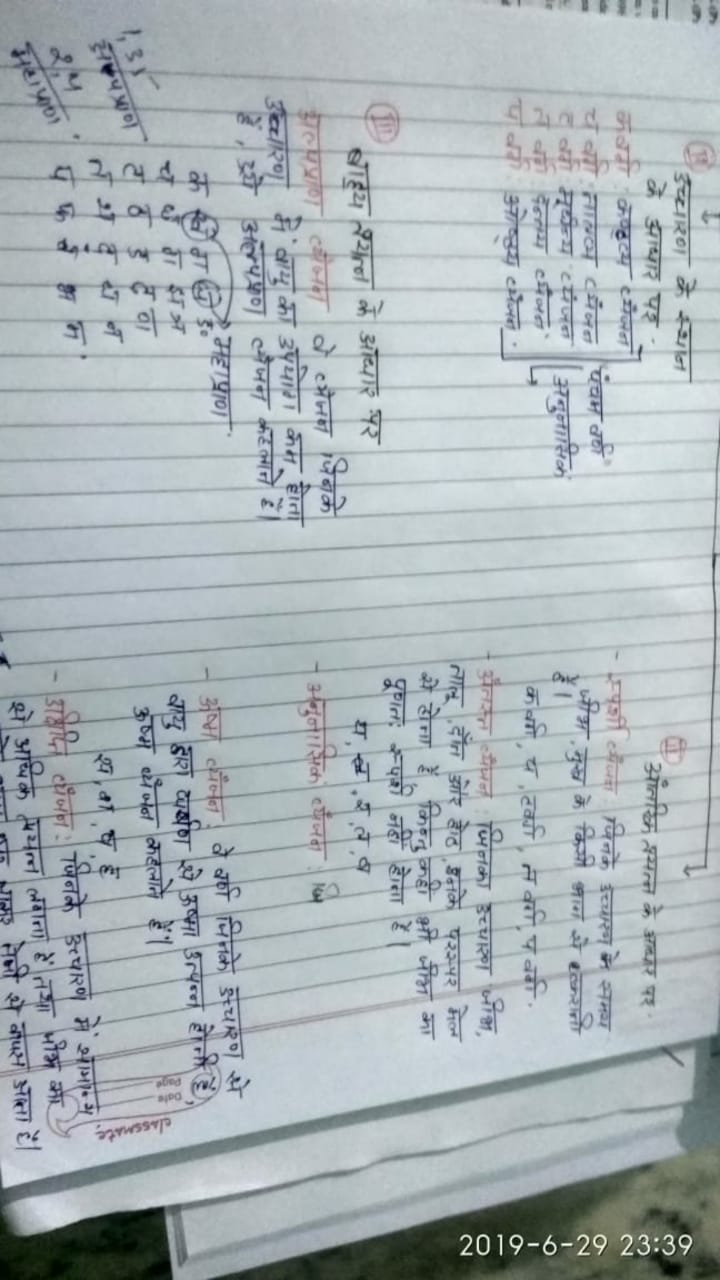 I उच्चारण के स्थान
के आधार पर.
क वर्ग : कण्ठ्य व्यंजन
च वर्ग : तालव्य व्यंजन
ट वर्ग : मूर्धन्य व्यंजन
त वर्ग : दन्त्य व्यंजन
प वर्ग : ओष्ठ्य व्यंजन.
पंचम वर्ण
अनुनासिक
III
बाह्य प्रयत्न के आधार पर
अल्पप्राण व्यंजन वे व्यंजन जिनके
उच्चारण में वायु का उपयोग कम होता
है, उसे अल्पप्राण व्यंजन कहलाते हैं।
महाप्राण.
क ख ग घ ङ
च छ ज झ ञ
ट ठ ड ढ ण
त थ द ध न
प फ ब भ म.
1,3,5
अल्पप्राण
2,4
महाप्राण
II आंतरिक प्रयत्न के आधार पर.
- स्पर्शी व्यंजन : जिनके उच्चारण के समय
जीभ, मुख के किसी भाग से टकराती
है।
क वर्ग, च, ट वर्ग, त वर्ग, प वर्ग.
- अंतस्थ व्यंजन : जिनका उच्चारण जीभ,
तालु, दाँत और होठ, इनके परस्पर मेल
से होता है किन्तु कहीं भी जीभ का
पूर्णतः स्पर्श नहीं होता है।
य, र, ल, व
- अनुनासिक व्यंजन :
- ऊष्म व्यंजन : वे वर्ण जिनके उच्चारण से
वायु द्वारा घर्षण से ऊष्मा उत्पन्न होती है,
ऊष्म व्यंजन कहलाते हैं।
श, ष, ह
- व्यंजन : जिनके उच्चारण में सामान्य
से अधिक प्रयत्न लगता है तथा जीभ का
classmate
Date
Page
2019-6-29 23:39